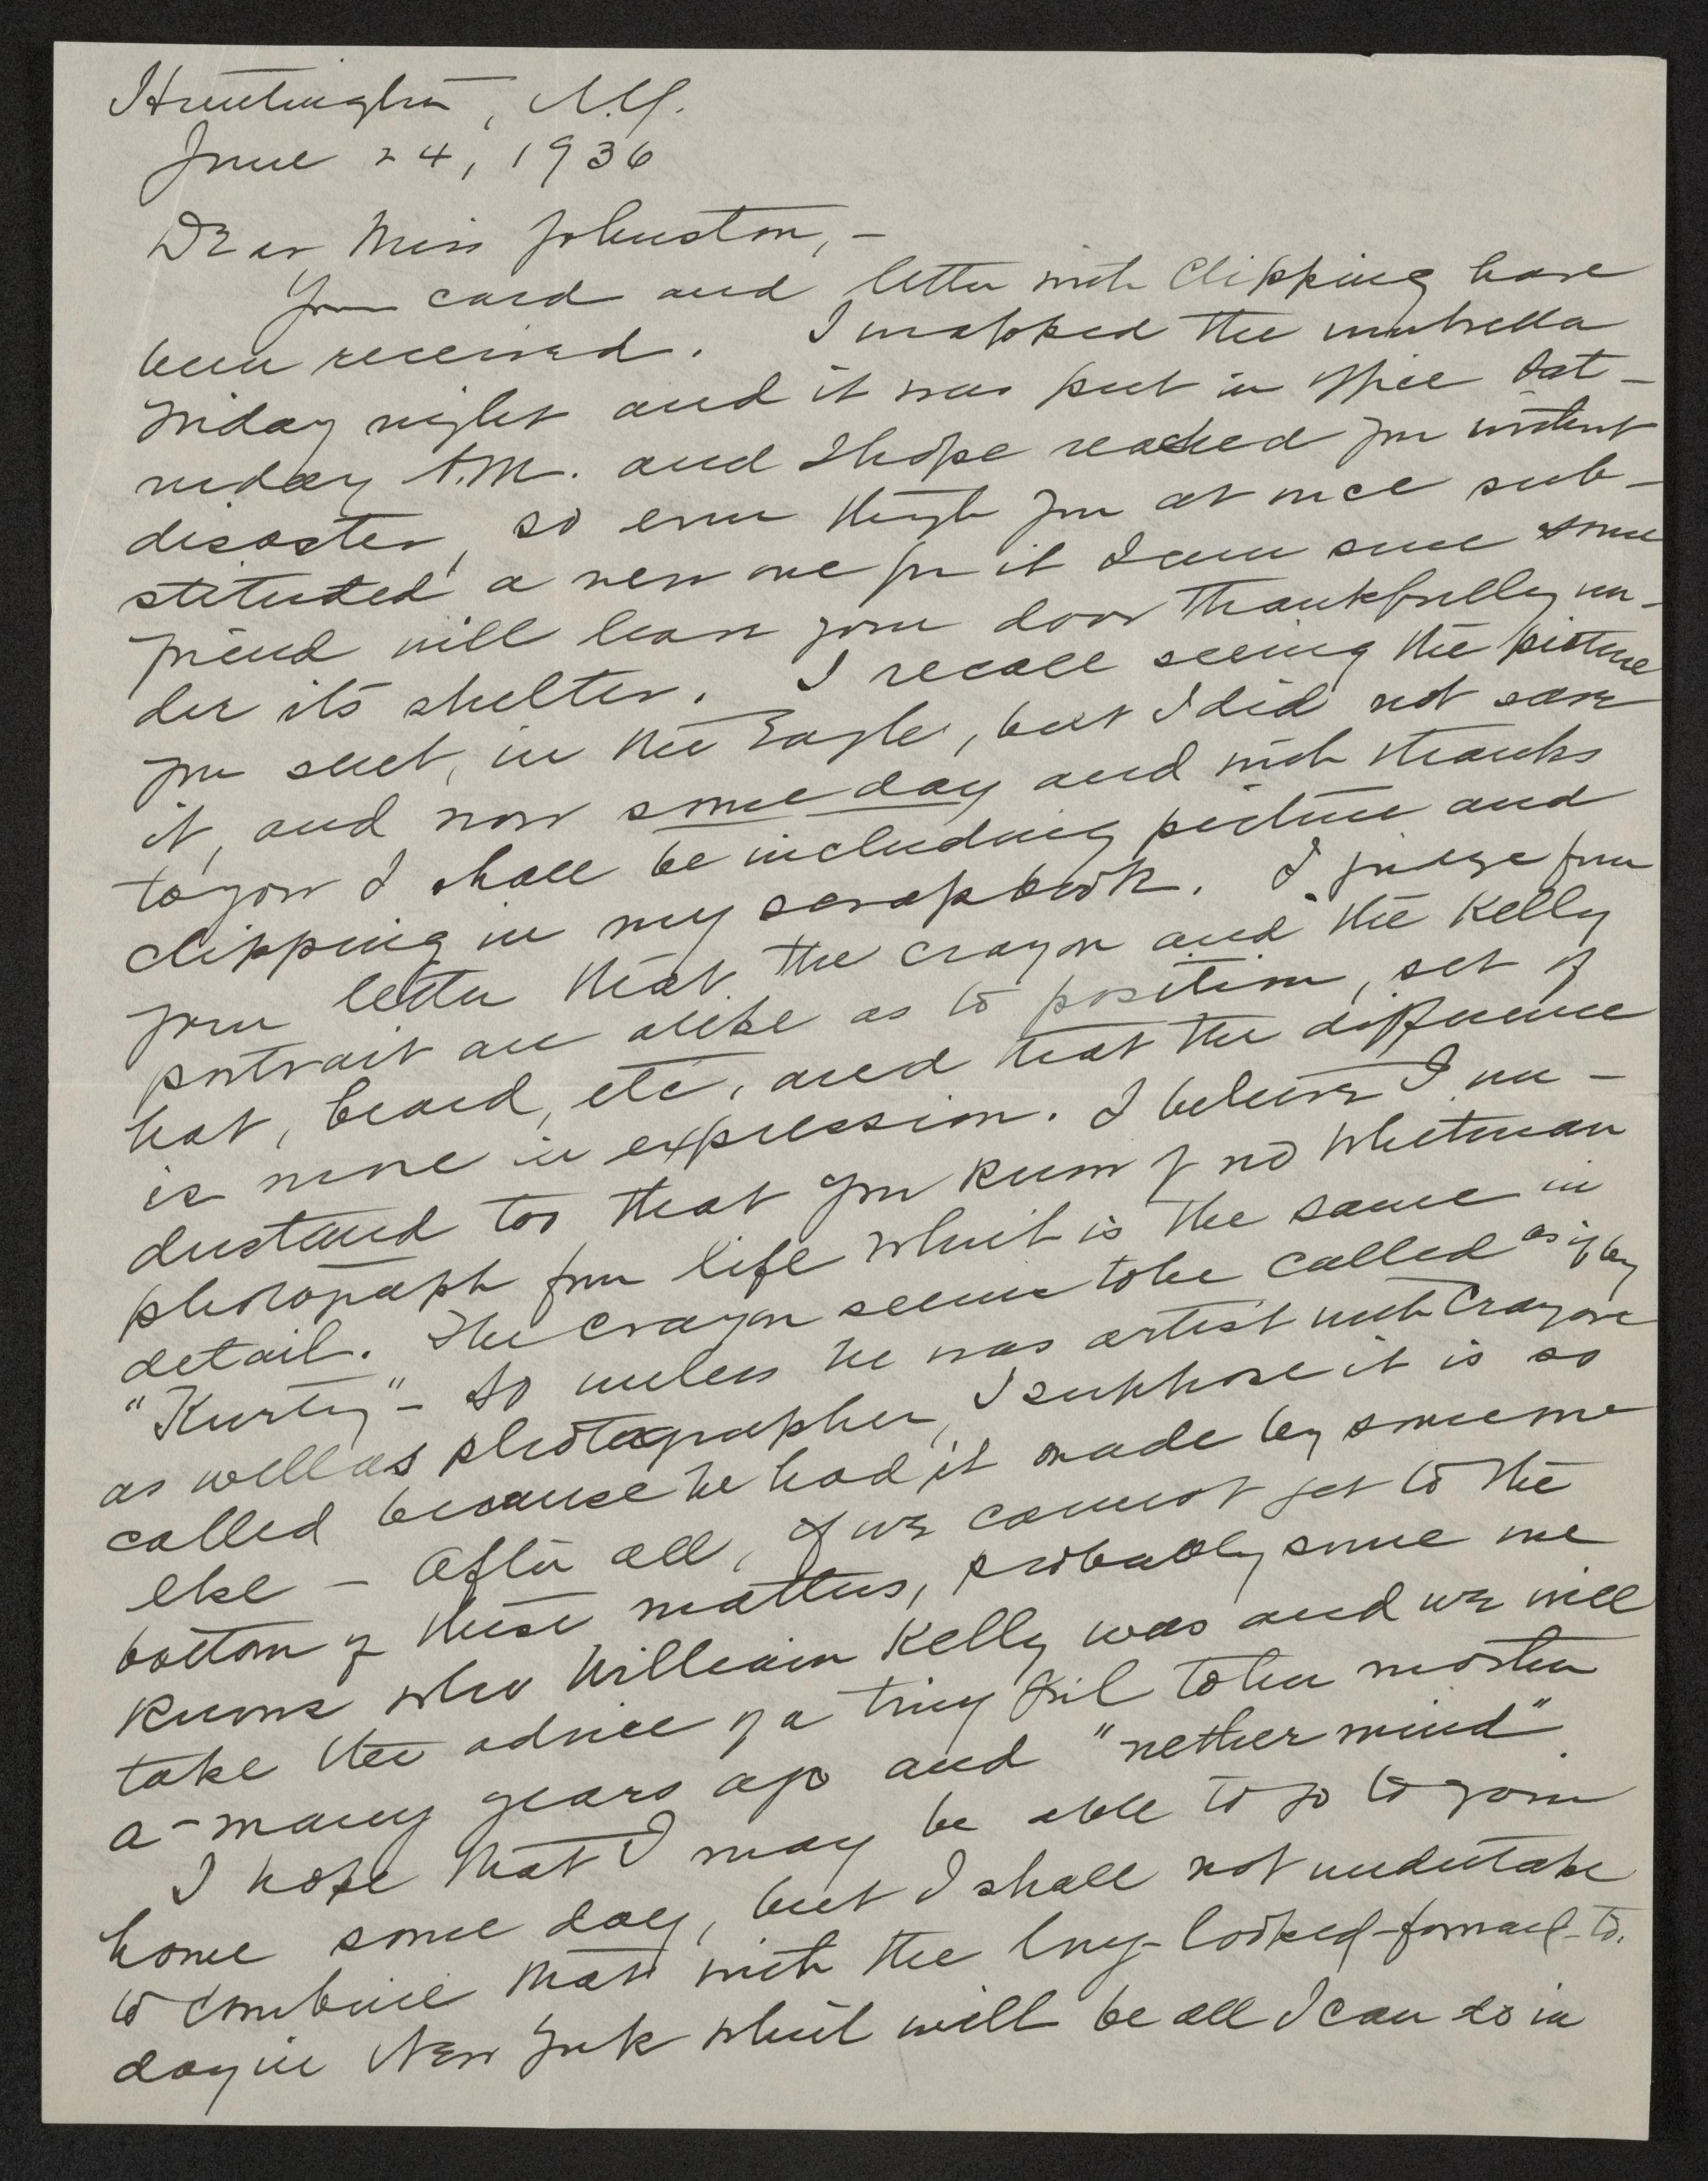 Huntington, N.Y.
June 24, 1936
Dear Miss Johnston, -
Your card and letter with clipping have
been received. I wrapped the umbrella
Friday night and it was put in office Sat-
urday A.M. and I hope reached you without
disaster, so even though you at once sub-
stituted a new one for it I am sure some
friend will leave your door thankfully un-
der its shelter. I recall seeing the picture
you sent, in the Eagle, but I did not save
it, and now some day and with thanks
to you I shall be including picture and
clipping in my scrapbook. I judge from
your letter that the crayon and the Kelly
portrait are alike as to position, set of
hat, beard, etc, and that the difference
is more in expression. I believe I un-
derstand too that you know of no Whitman
photograph from life which is the same in
detail. The Crayon seems to be called as if by
"Kurtz" - so unless he was artist with Crayons
as well as photographer, I suppose it is so
called because he had it made by someone
else - After all, if we cannot get to the
bottom of these matters, probably some one
knows who William Kelly was and we will
take the advice of a tiny girl to her mother
a-many years ago and "nether mind".
I hope that I may be able to go to your
home some day, but I shall not undertake
to combine that with the long-looked-forward-to.
day in New York which will be all I can do in